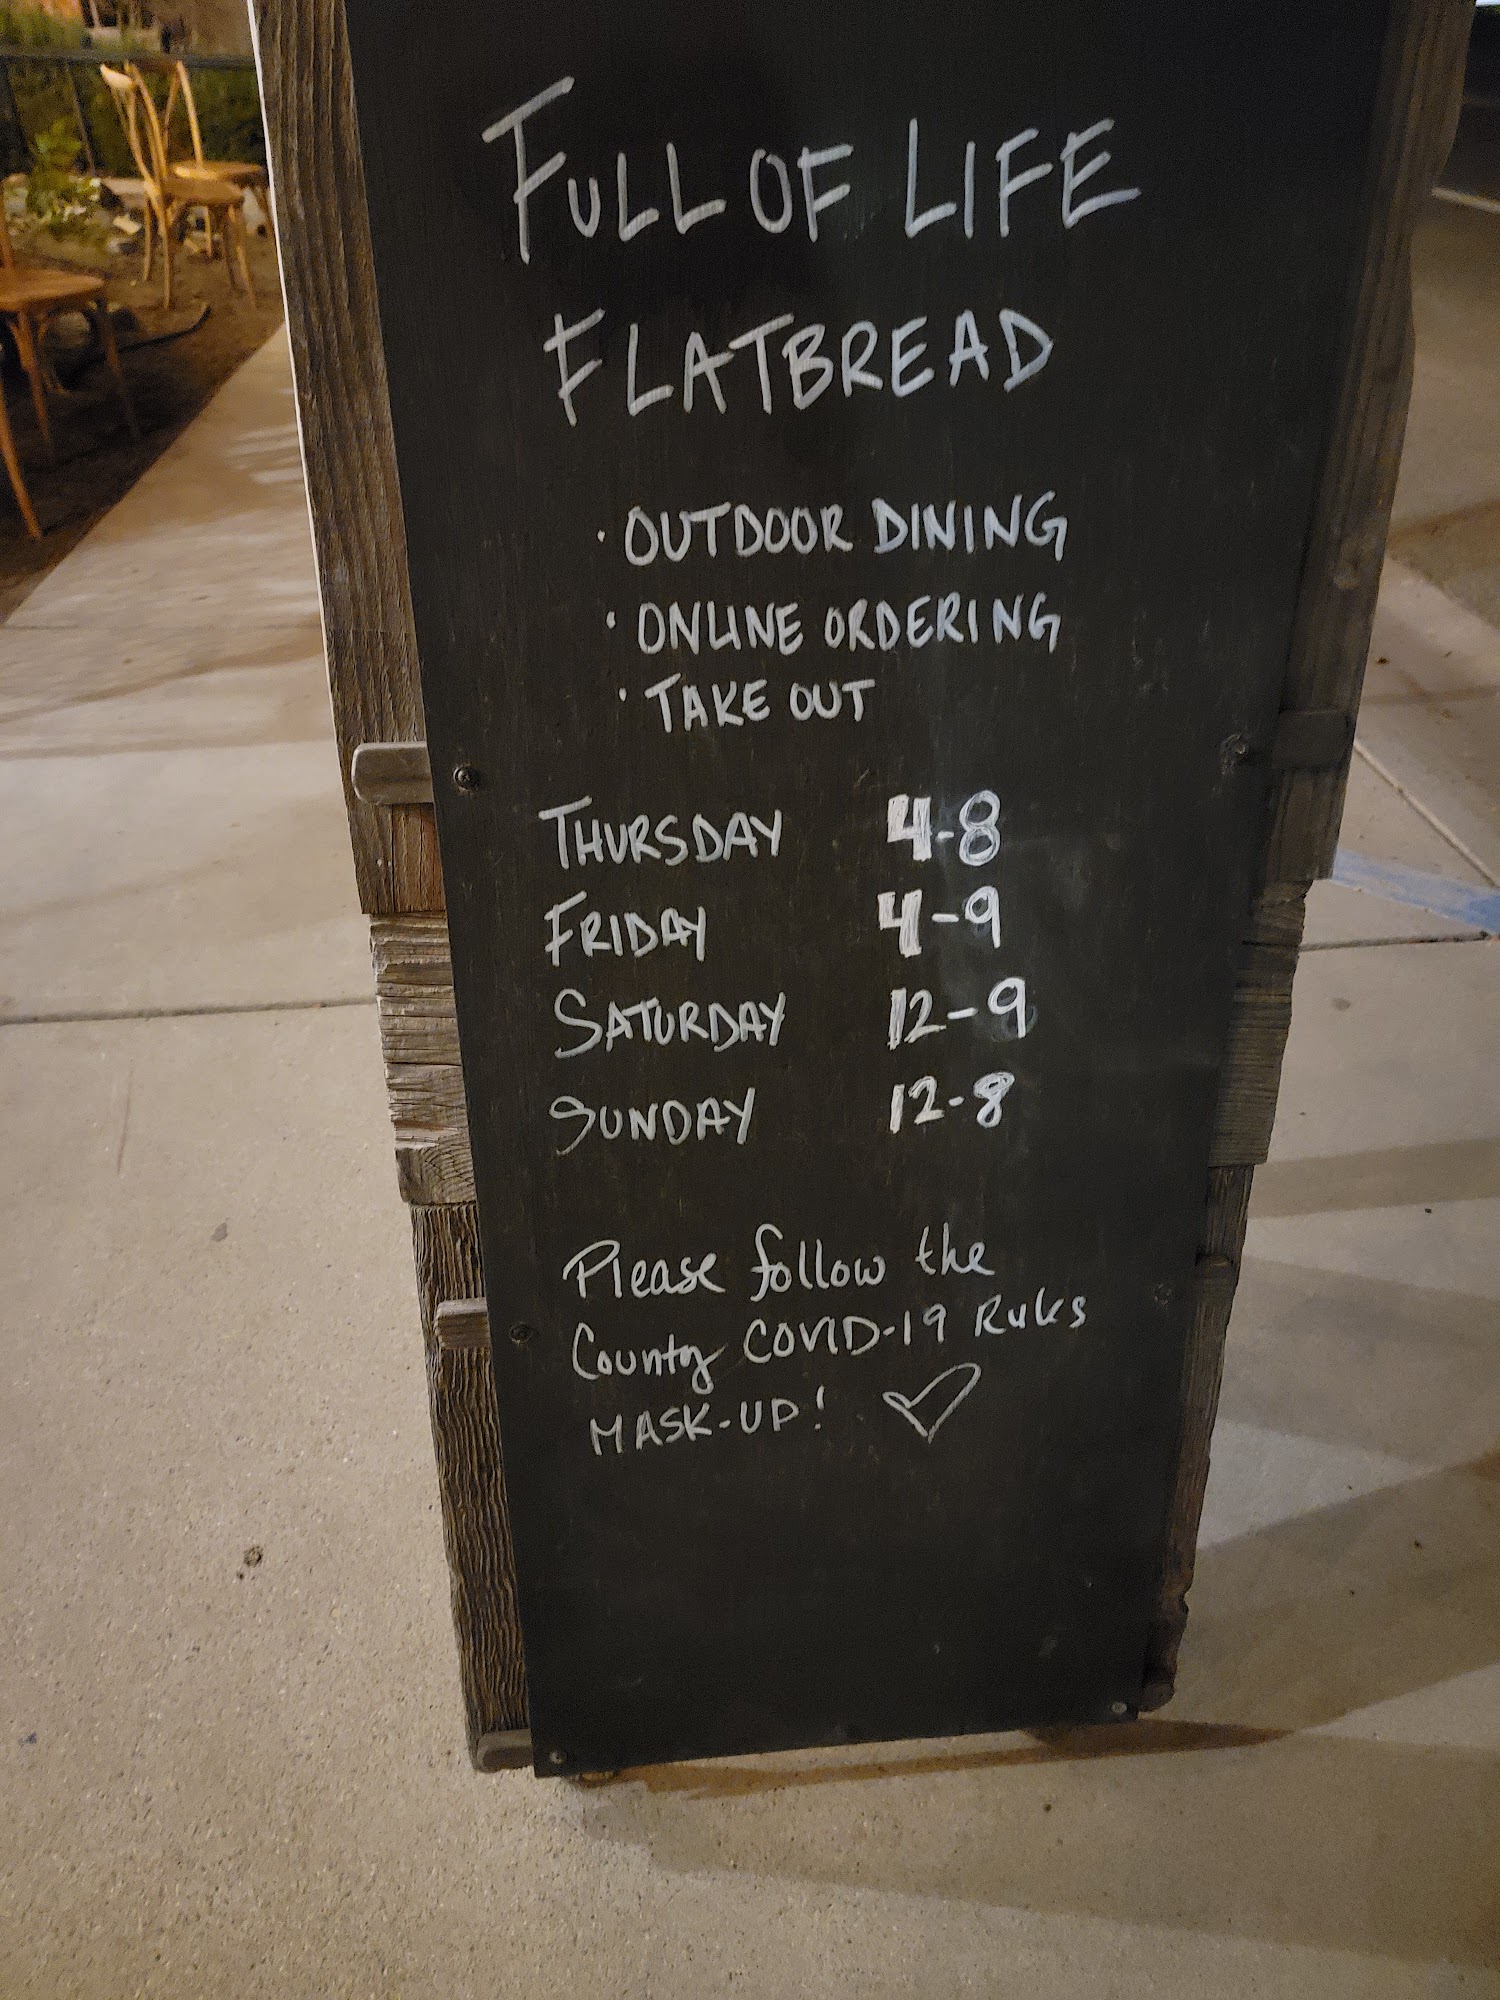 FULL OF LIFE
FLATBREAD
· OUTDOOR DINING
· ONLINE ORDERING
· TAKE OUT
THURSDAY 4-8
FRIDAY 4-9
SATURDAY 12-9
SUNDAY 12-8
Please follow the
County COVID-19 Rules
MASK-UP! ♡